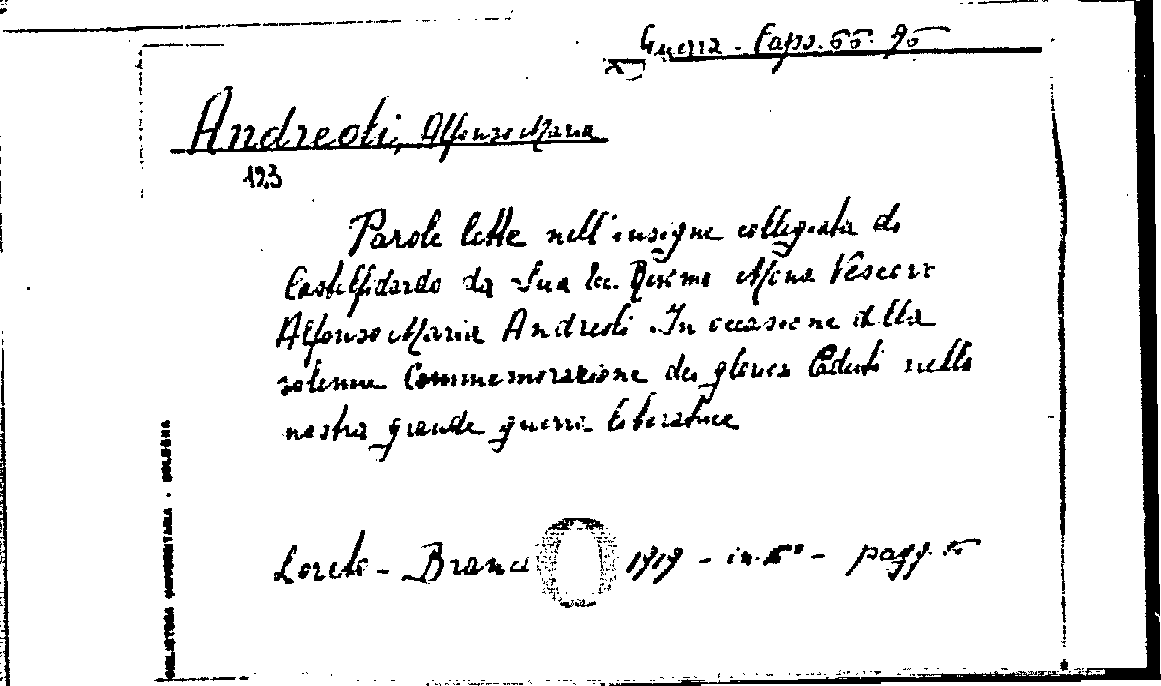 Guerra - Caps. 55. 95
Andreoli, Alfonso Maria
123
Parole lette nell'insigne collegiata di
Castelfidardo da Sua Ecc. Revma Mons. Vescovo
Alfonso Maria Andreoli. In occasione della
solenne Commemorazione dei gloriosi Caduti nella
nostra grande guerra liberatrice
Loreto - Brancia 1919 - in- - pagg.
BIBLIOTECA UNIVERSITARIA - BOLOGNA